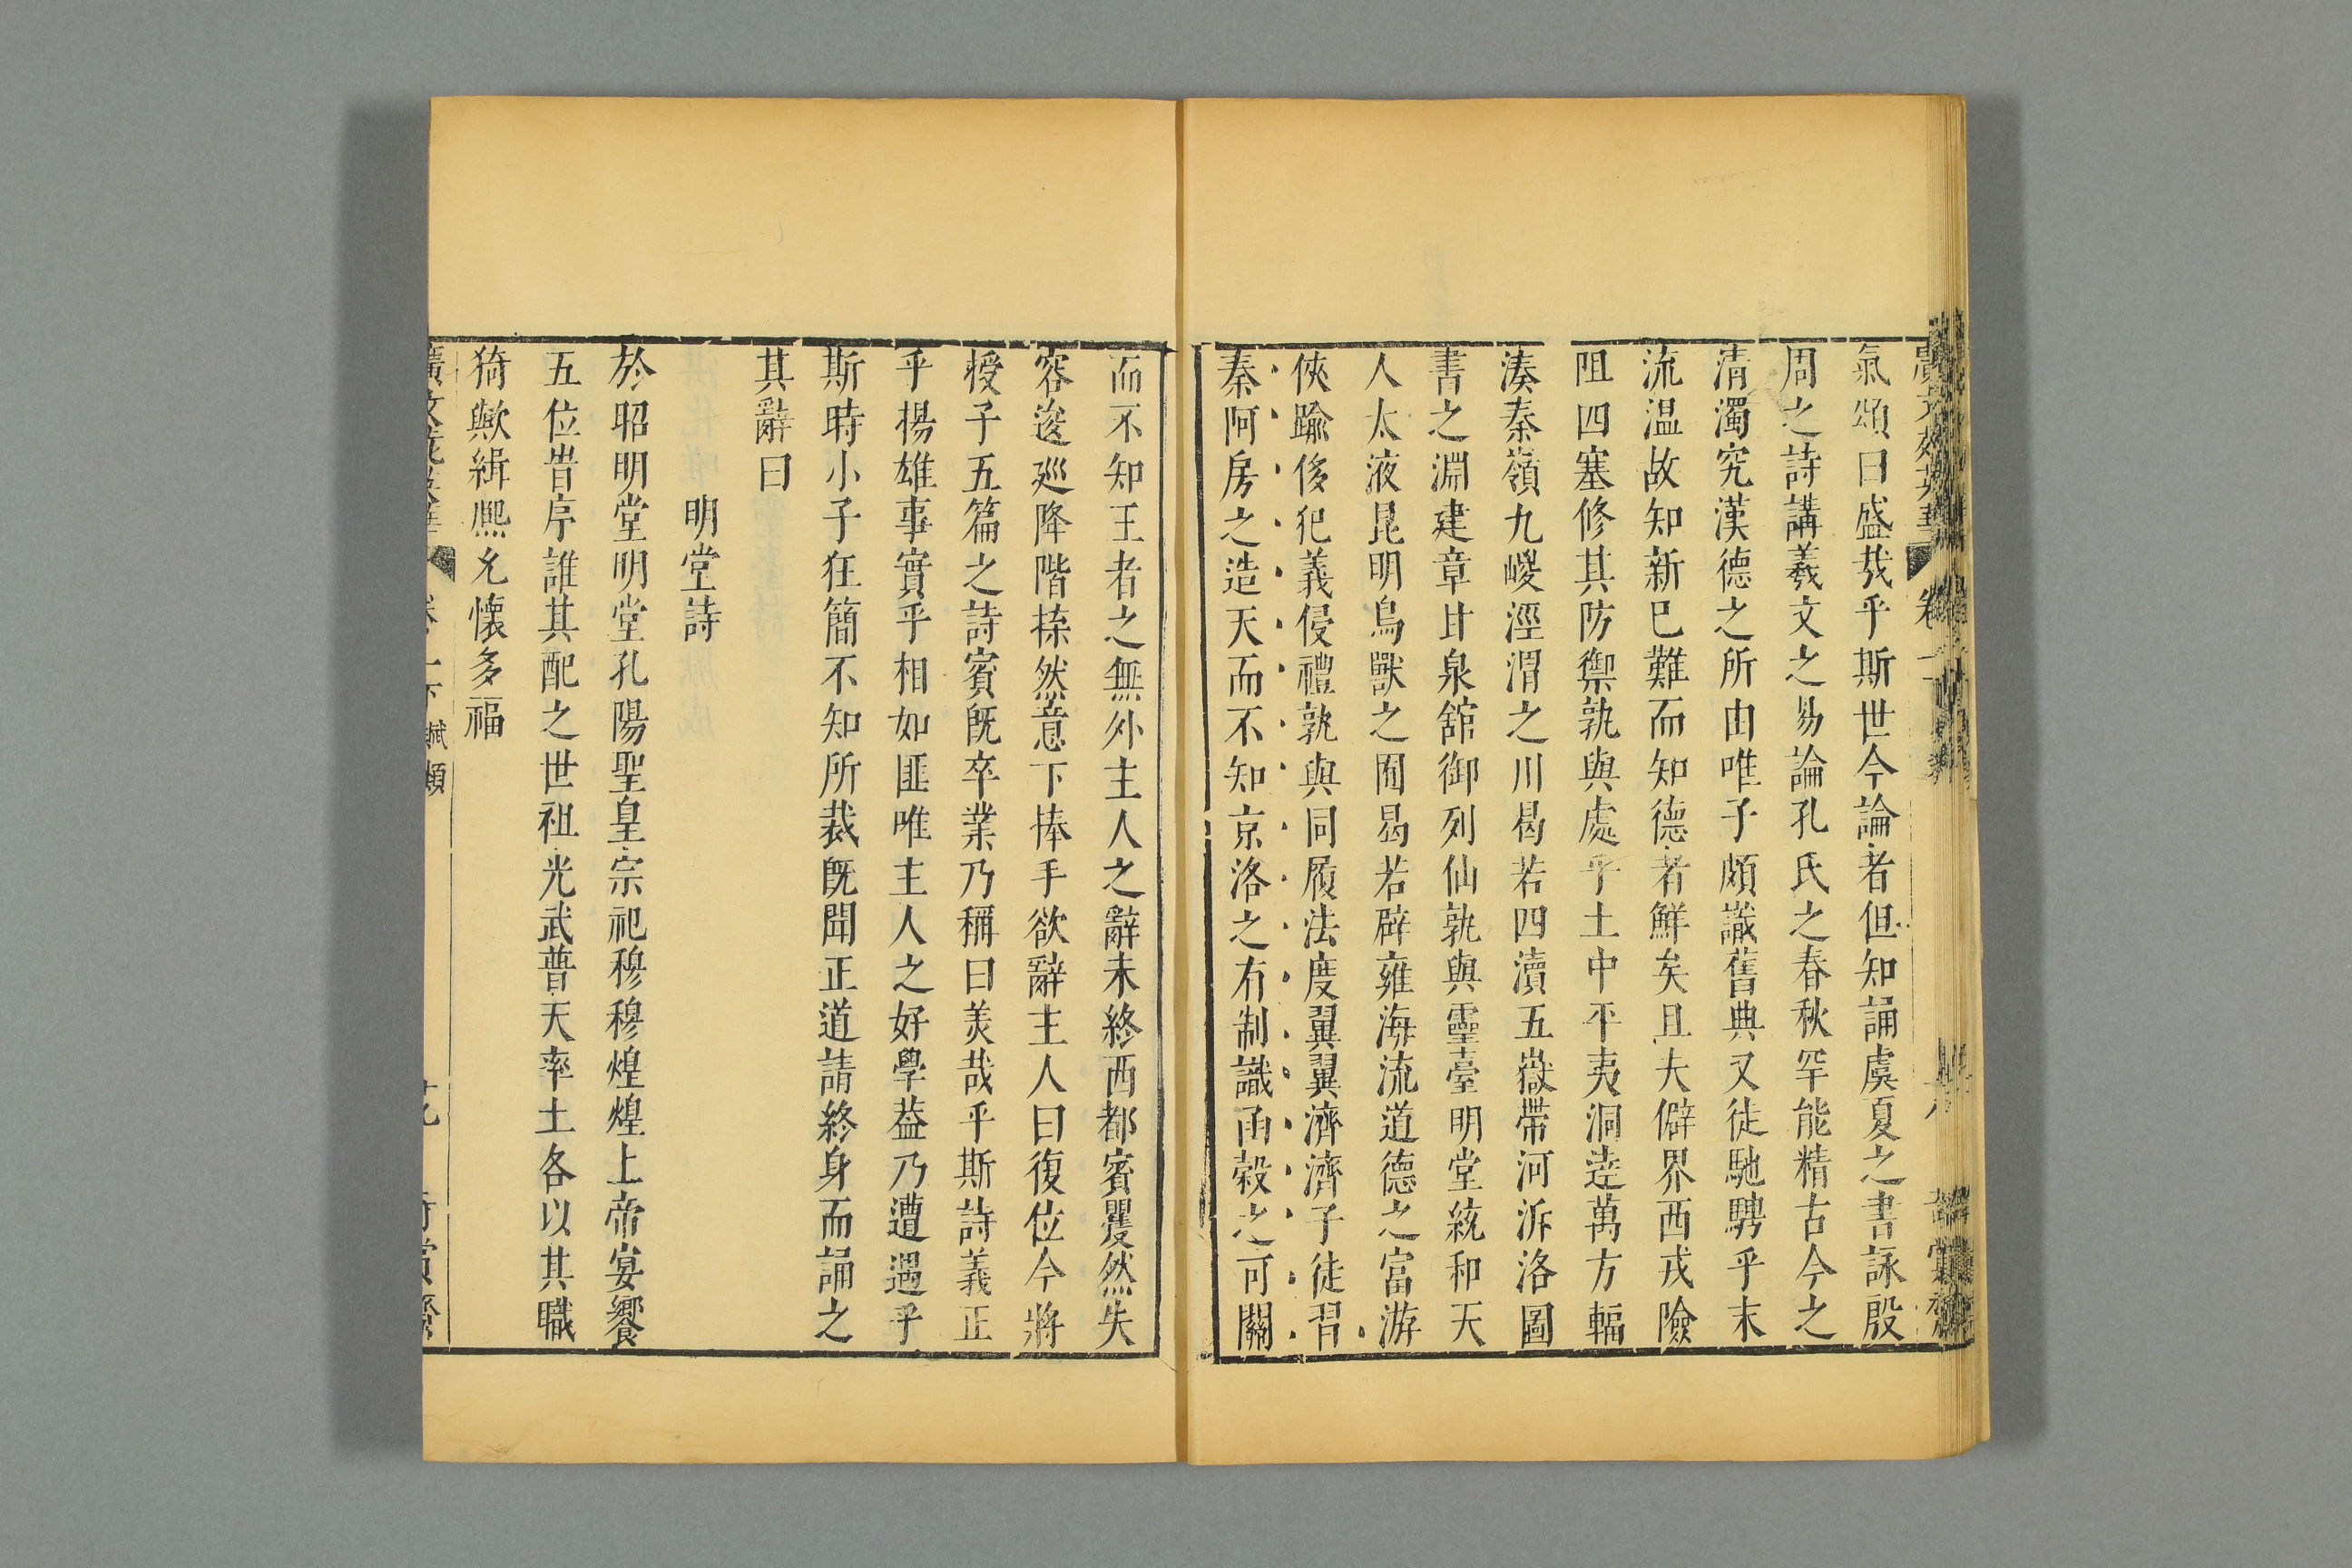 氣頌曰盛哉乎斯世今論者但知誦虞夏之書詠殷
周之詩講羲文之易論孔氏之春秋罕能精古今之
清濁究漢德之所由唯子頗識舊典又徒馳騁乎末
流温故知新巳難而知德者鮮矣且夫僻界西戎險
阻四塞修其防禦孰與處乎土中平夷洞達萬方輻
湊秦嶺九嵕涇渭之川曷若四瀆五嶽帶河泝洛圖
書之淵建章甘泉舘御列仙孰與靈臺明堂統和天
人太液昆明鳥獸之囿曷若辟雍海流道德之富游
俠踰侈犯義侵禮孰與同履法度翼翼濟濟子徒習
秦阿房之造天而不知京洛之有制識函榖之可關
而不知王者之無外主人之辭未終西都賓矍然失
容逡巡降階㥄然意下捧手欲辭主人曰復位今將
授子五篇之詩賓旣卒業乃稱曰美哉乎斯詩義正
乎揚雄事實乎相如匪唯主人之好學葢乃遭遇乎
斯時小子狂簡不知所裁旣聞正道請終身而誦之
其辭曰
明堂詩
於昭明堂明堂孔陽聖皇宗祀穆穆煌煌上帝宴饗
五位旹序誰其配之世祖光武普天率土各以其職
猗歟緝熈允懷多福
賦類